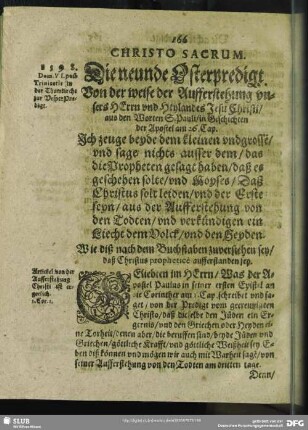 166
CHRISTO SACRUM.
1598.
Dom. VI. post
Trinitatis in
der Thumkirche
zur Vesper Predigt.
Die neunde Osterpredigt.
Von der weise der Aufferstehung vnsers HErrn vnd Heylandes Jesu Christi/
aus den Worten S. Pauli/ in Geschichten
der Apostel am 26. Cap.
Ich zeuge beyde dem kleinen vnd grossen/
vnd sage nichts ausser dem/ das
die Propheten gesagt haben/ daß es
geschehen solte/ vnd Moyses/ Daß
Christus solt leiden/ vnd der Erste
seyn/ aus der Aufferstehung von
den Todten/ vnd verkündigen ein
Liecht dem Volck/ vnd den Heyden.
Wie diß nach dem Buchstaben zuverstehen sey/
daß Christus aufferstanden sey.
Articul von der
Aufferstehung
Christi ist ergerlich.
1. Cor. 1.
GEliebten im HErrn/ Was der Apostel
Paulus in seiner ersten Epistel an
die Corinther am 1. Cap. schreibet vnd saget/
von der Predigt vom gecreutzigten
Christo/ daß dieselbe den Jüden ein Ergernis/
vnd den Griechen oder Heyden eine
Torheit/ denen aber/ die beruffen sind/ beyde Jüden vnd
Griechen/ göttliche Krafft/ vnd göttliche Weißheit sey/
Eben diß können vnd mögen wir auch mit Warheit sagen/ von
seiner Aufferstehung von den Todten am dritten tage.
Denn/
SLUB
Wir führen Wissen.
DFG